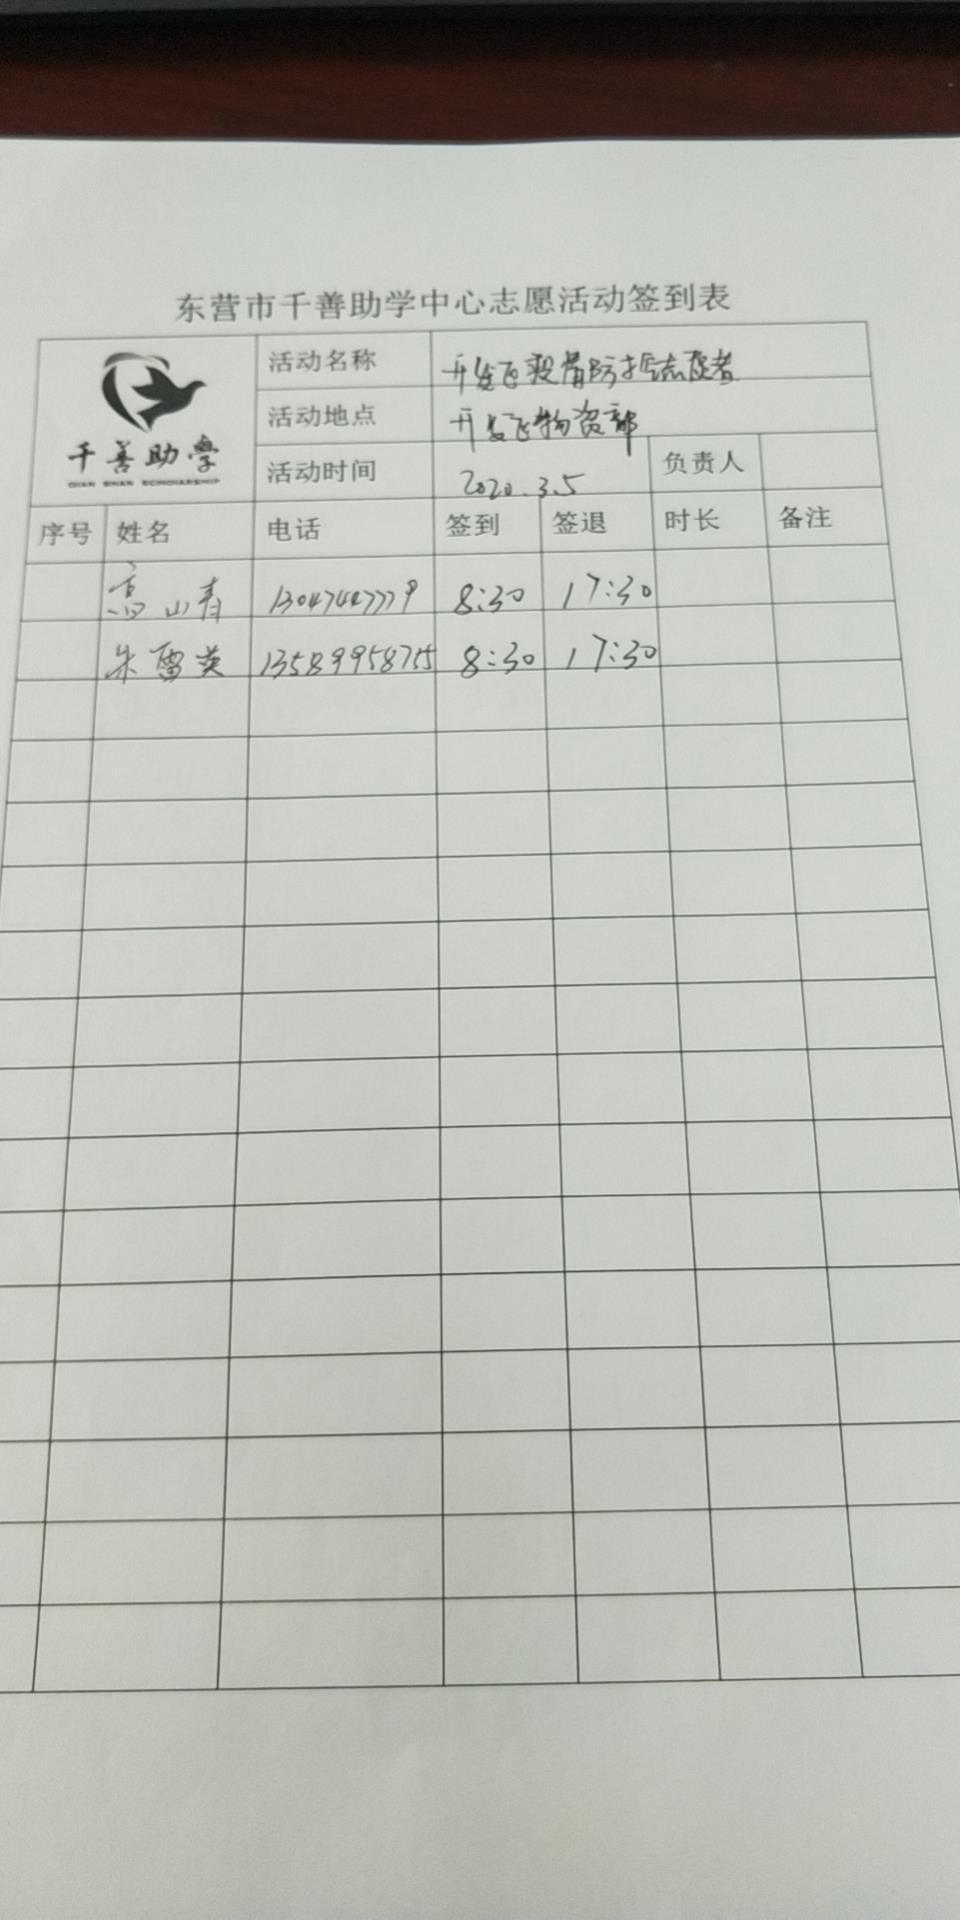 东营市千善助学中心志愿活动签到表
千善助學
QIAN SHAN SCHOLARSHIP
活动名称 开发区疫情防控志愿者
活动地点 开发区物资部
活动时间 2020.3.5 负责人
序号 姓名 电话 签到 签退 时长 备注
高山青 8:30 17:30
朱雷英 13589958755 8:30 17:30